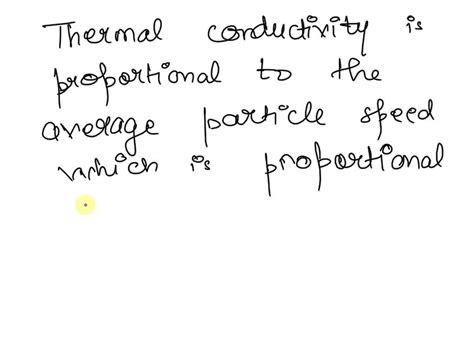 Thermal conductivity is
proportional to the
average particle speed
which is proportional